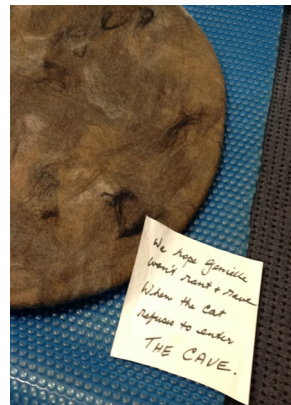 We hope Genille
won't rant + rave
When the cat
refuses to enter
THE CAVE.